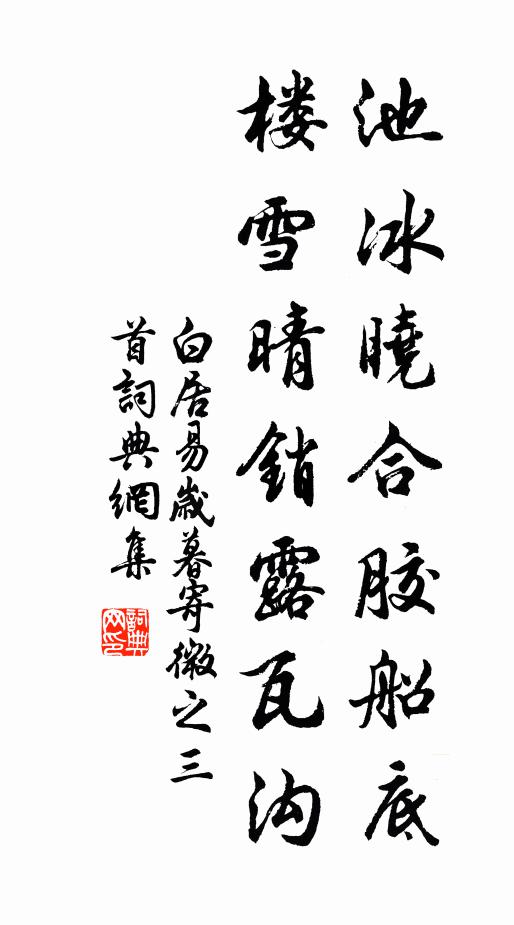 池冰曉合胶船底
楼雪晴銷露瓦沟
白居易歲暮寄微之三
首詞典網集
詞典
网印